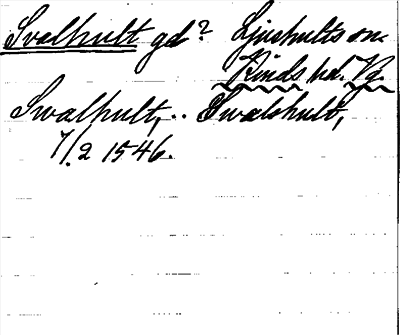 Svalhult gd? Ljushults sn.
Kinds hd. Vg.
Swalhult, .. Swalshult,
7/2 1546.